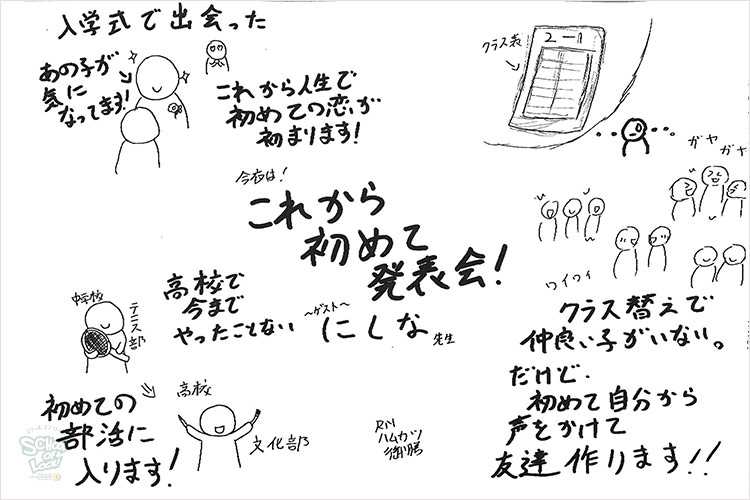 入学式で出会った
あの子が
気に
なってます!
これから人生で
初めての恋が
初まります!
クラス表
2-11
ガヤ
ガヤ
ワイワイ
今夜は!
これから
初めて
発表会!
〜ゲスト〜
にしな 先生
高校で
今まで
やったことない
中学校
テニス部
初めての
部活に
入ります!
高校
文化部
RN
ハムカツ
クラス替えで
仲良い子がいない。
だけど、
初めて自分から
声をかけて
友達作ります!!
SCHOOL
OF
LOCK!